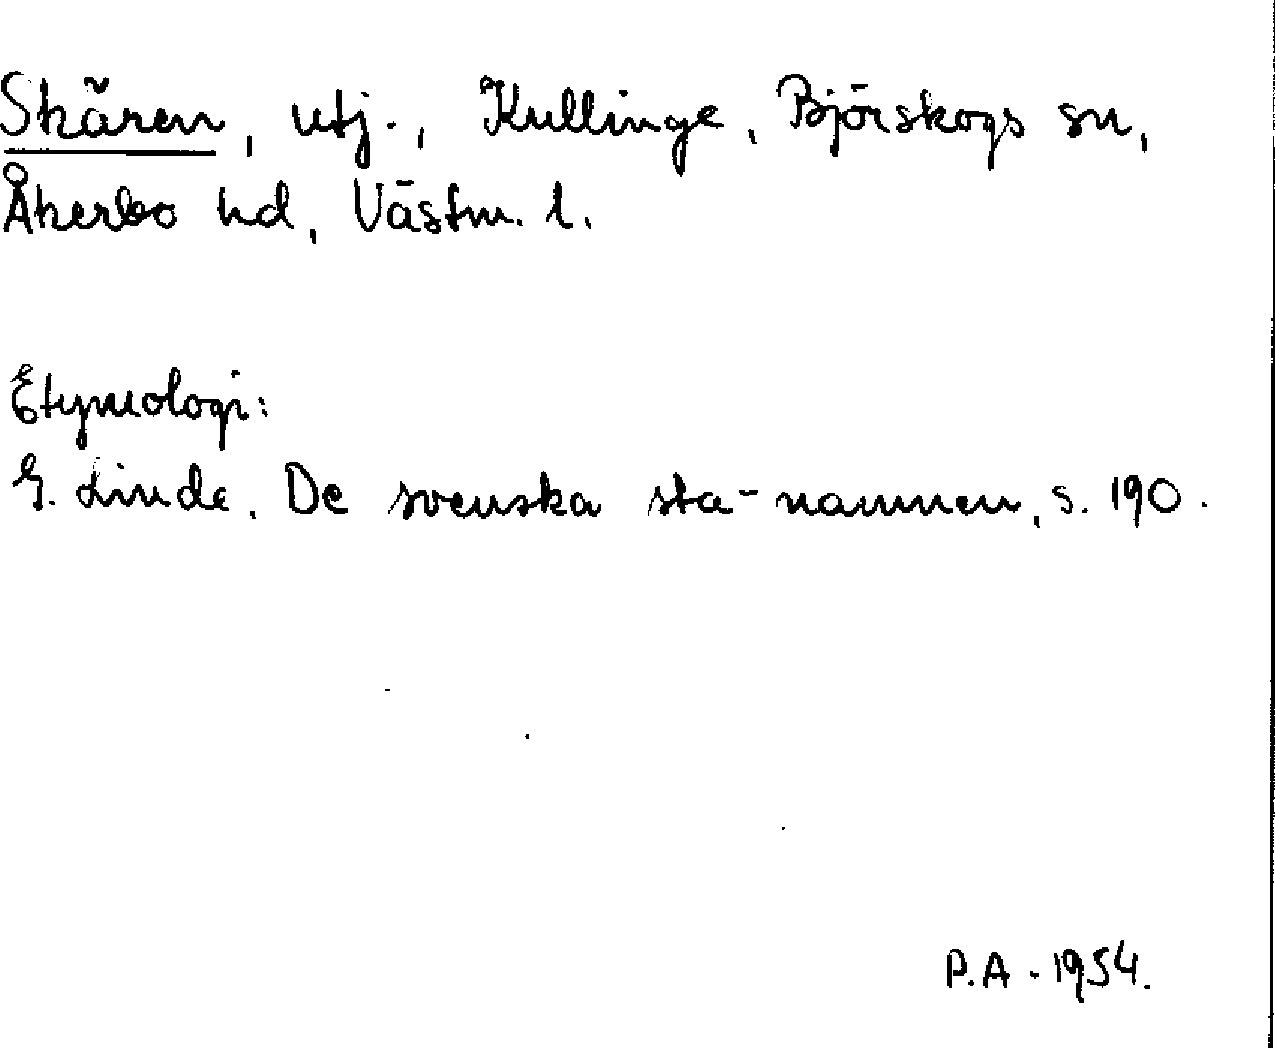 Skären, utj., Kullinge, Björskogs sn,
Åkerbo hd, Västm. l.
Etymologi:
G. Linde, De svenska sta-namnen, s. 190.
P.A. 1954.